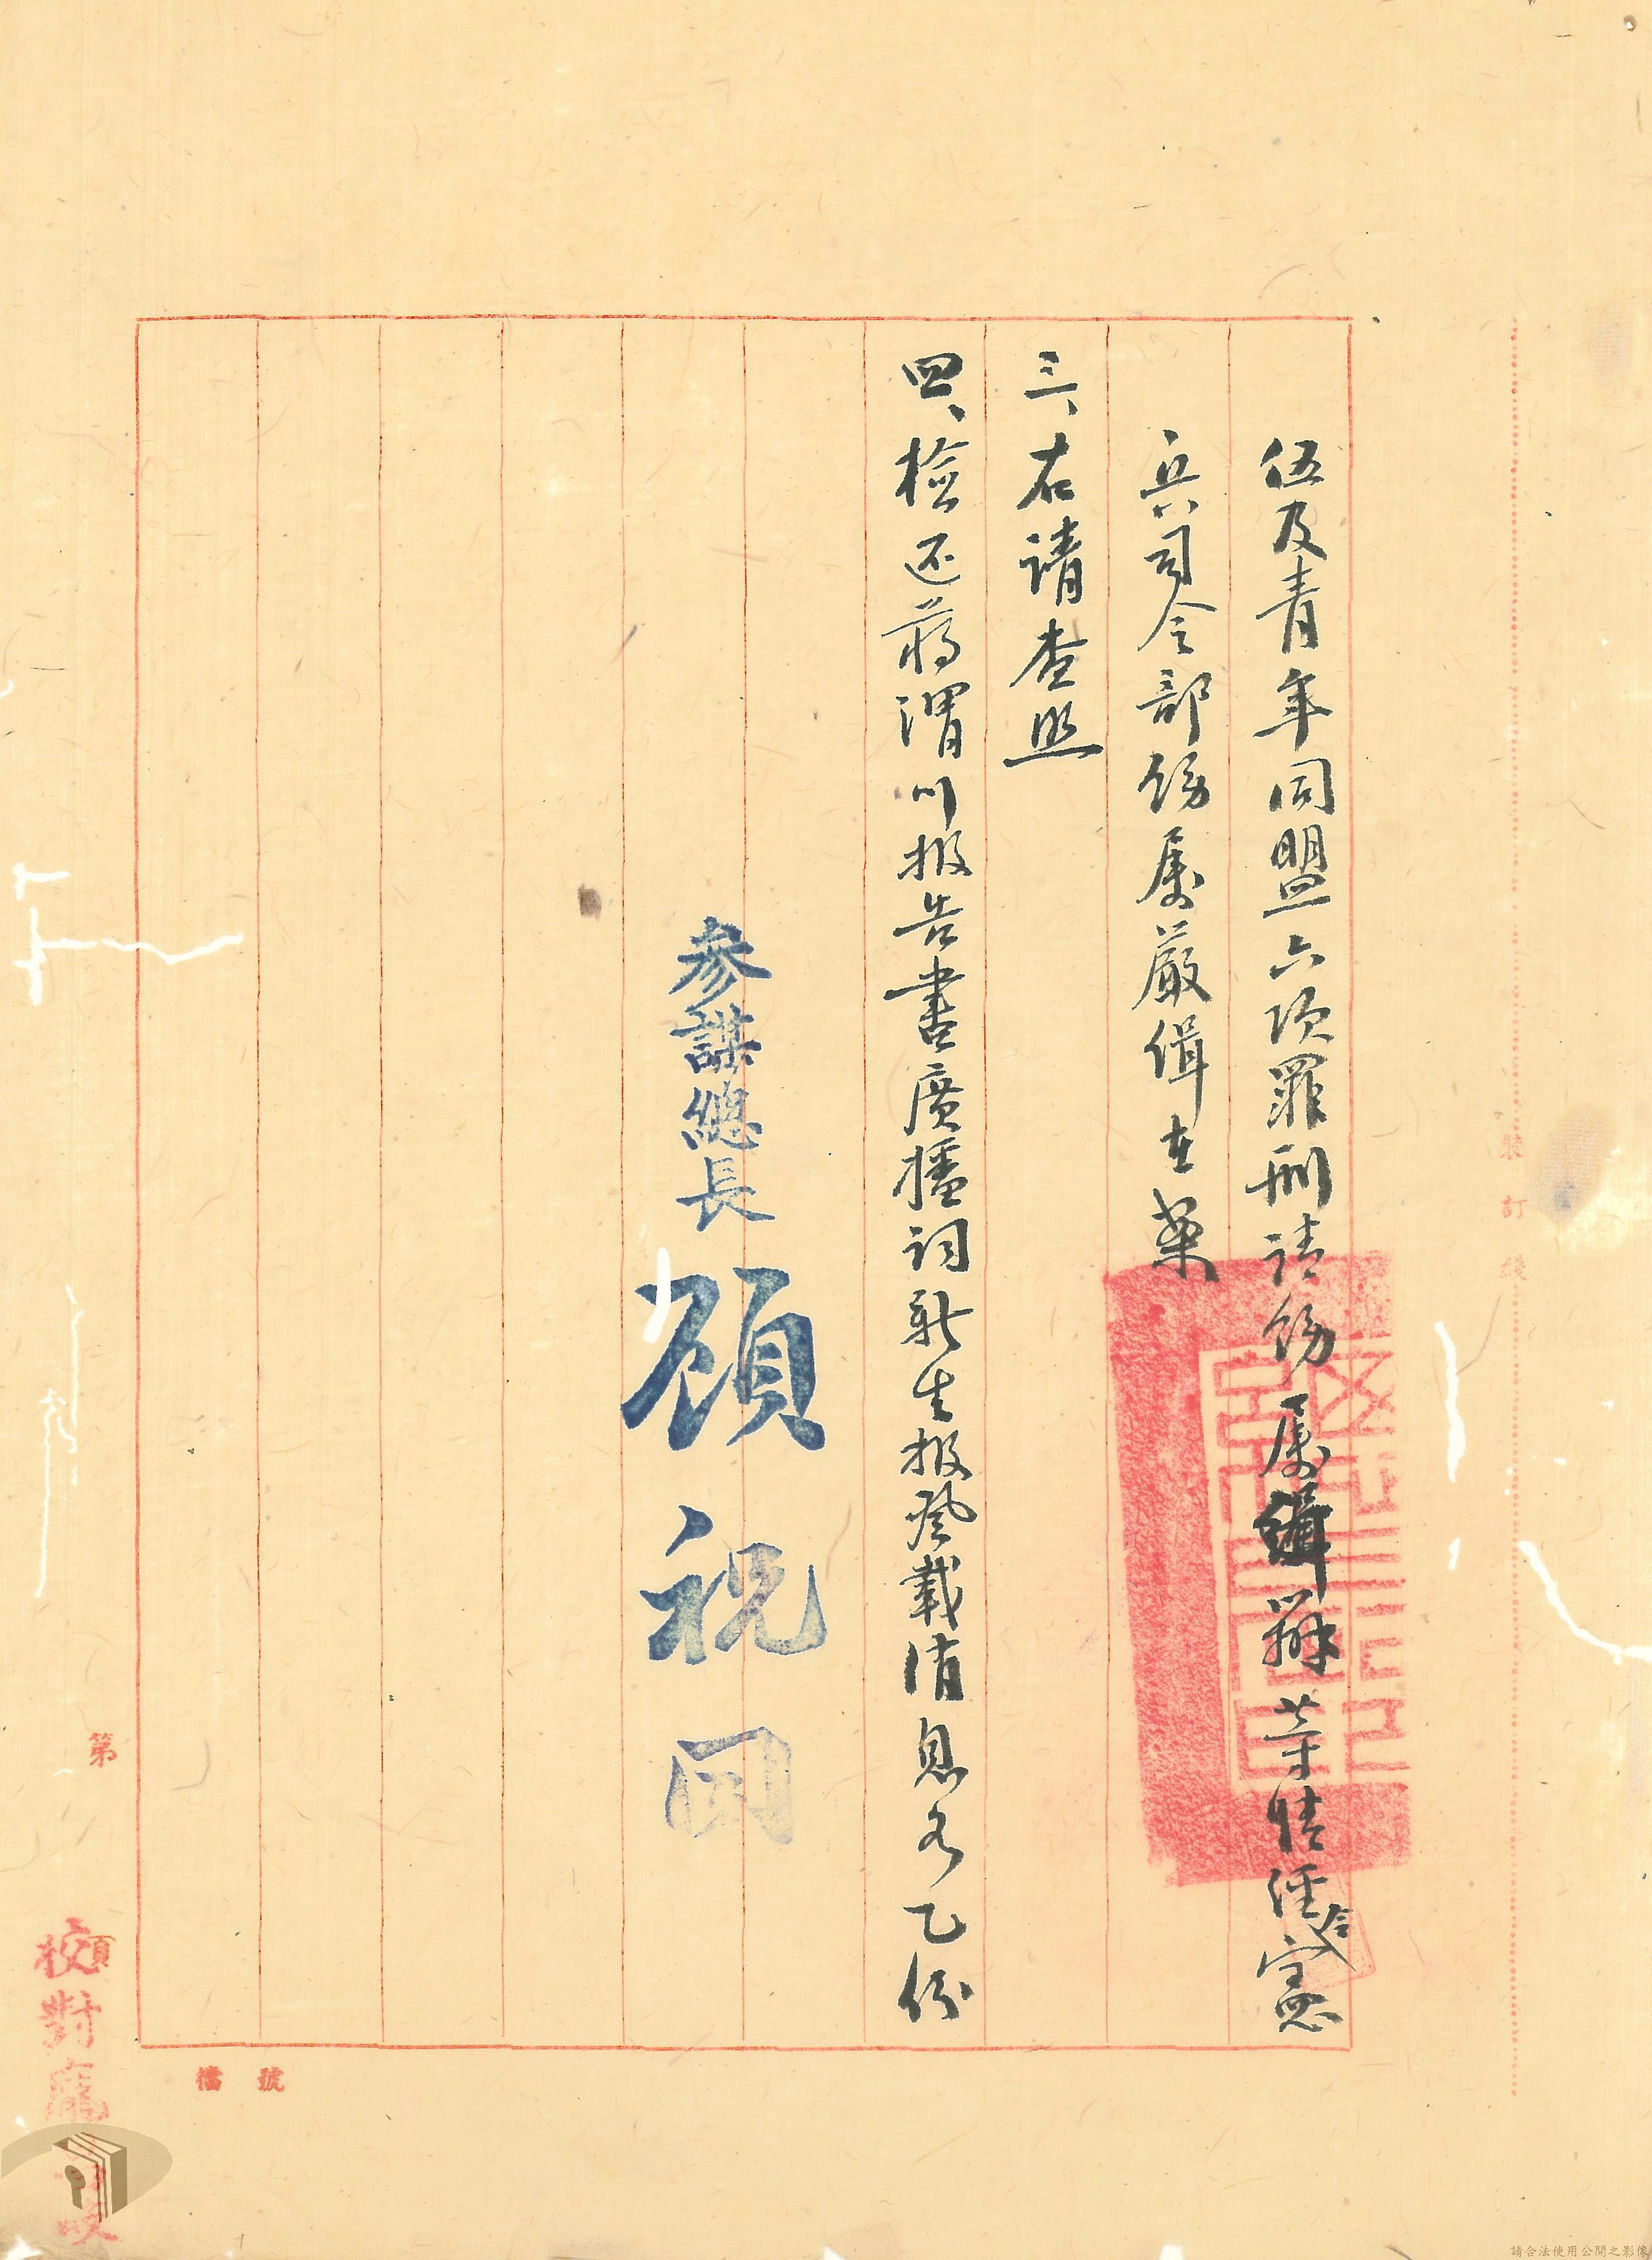 伍及青年同盟六項罪刑請飭屬緝辦等情經令憲
兵司令部飭屬嚴緝在案
三、右請查照
四、檢还蔣渭川报告書廣播詞新生报登載消息各乙份
參謀總長 顧祝同
裝訂綫
第
頁
檔號
校對龐
請合法使用公開之影像